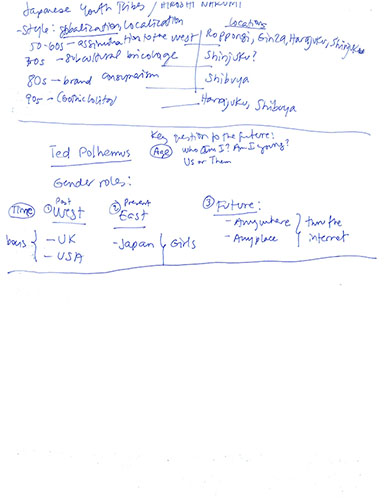 Japanese Youth Tribes / HIROSHI NARUMI
- Style: globalization/localization Locations
50-60s - assimilation to the west Roppongi, Ginza, Harajuku, Shinjuku
70s - subcultural bricolage Shinjuku?
80s - brand consumerism Shibuya
90s - (Gothic lolita) Harajuku, Shibuya
Key question to the future:
Ted Polhemus Age Who am I? Am I young?
Us or Them
Gender roles:
Time ① Past West ② Present East ③ Future:
boys - UK - Japan Girls - Anywhere thru the
- USA - Anyplace internet